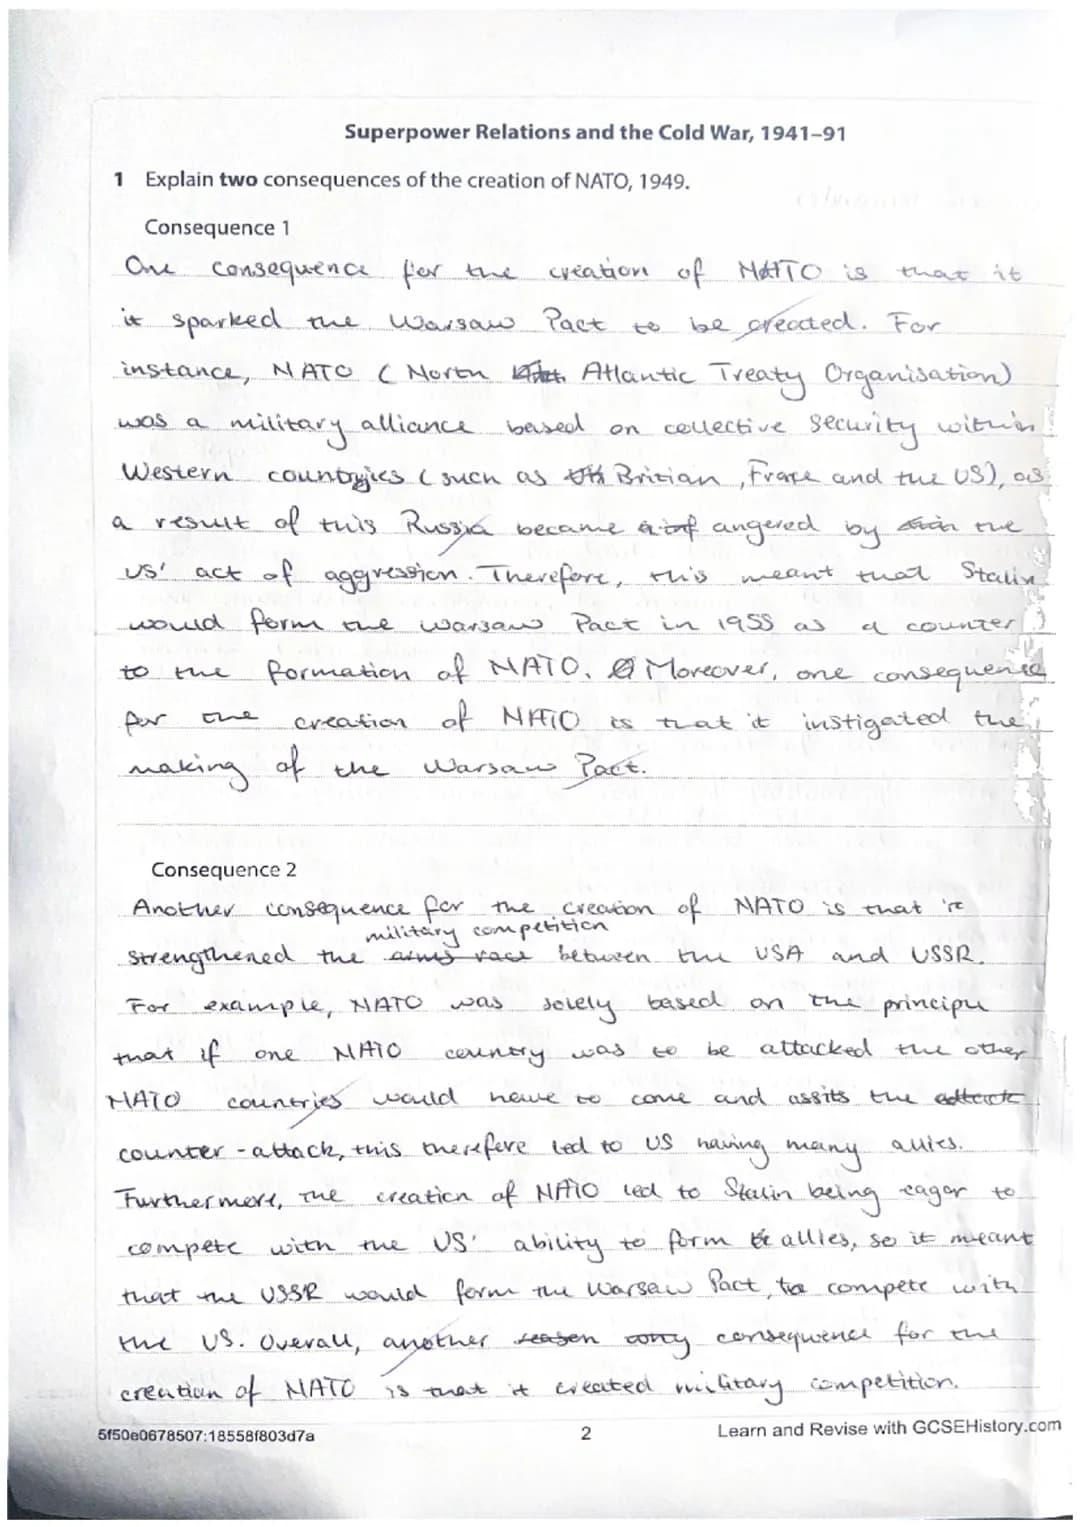 Superpower Relations and the Cold War, 1941–91
1 Explain two consequences of the creation of NATO, 1949.
Consequence 1
One consequence for the creation of NATO is that it
it sparked the Warsaw Pact to be created. For
instance, NATO (North Atlantic Treaty Organisation)
was a military alliance based on collective security within
Western countries (such as Britian, Frace and the US), as
a result of this Russia became angered by the
US' act of aggression. Therefore, this meant that Stalin
would form the Warsaw Pact in 1955 as a counter
to the formation of NATO. Moreover, one consequence
for the creation of NATO is that it instigated the
making of the Warsaw Pact.
Consequence 2
Another consequence for the creation of NATO is that it
military competition
strengthened the arms race between the USA and USSR.
For example, NATO was solely based on the principle
that if one NATO country was to be attacked the other
NATO countries would have to come and assits the attack
counter-attack, this therefore led to US having many allies.
Furthermore, the creation of NATO led to Stalin being eager to
compete with the US' ability to form allies, so it meant
that the USSR would form the Warsaw Pact, to compete with
the US. Overall, another reason consequence for the
creation of NATO is that it created military competition.
5f50e0678507:18558f803d7a
2
Learn and Revise with GCSEHistory.com